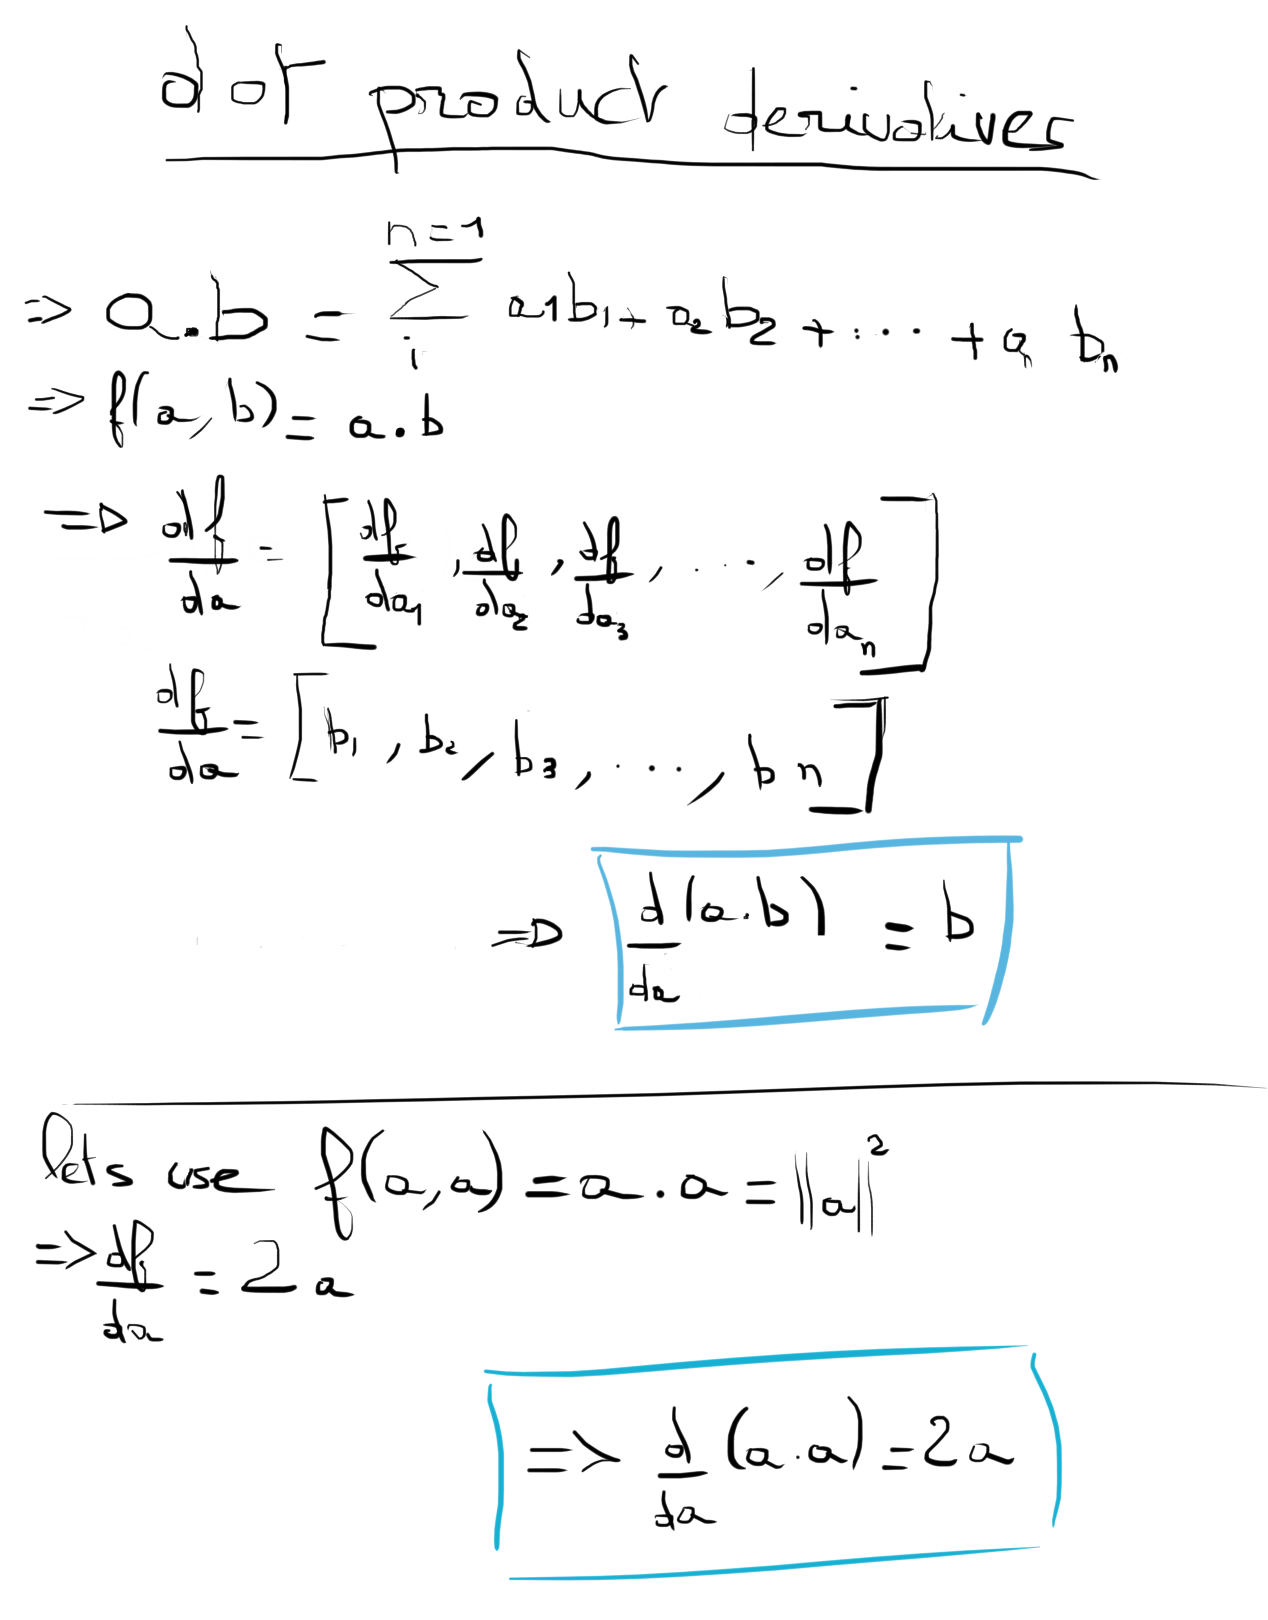 dot product derivatives
n=1
=> a.b = Σ a1b1 + a2b2 + ... + an bn
i
=> f(a,b) = a.b
=> df/da = [df/da1, df/da2, df/da3, ..., df/dan]
df/da = [b1, b2, b3, ..., bn]
=> d/da (a.b) = b
lets use f(a,a) = a.a = ||a||²
=> df/da = 2a
=> d/da (a.a) = 2a